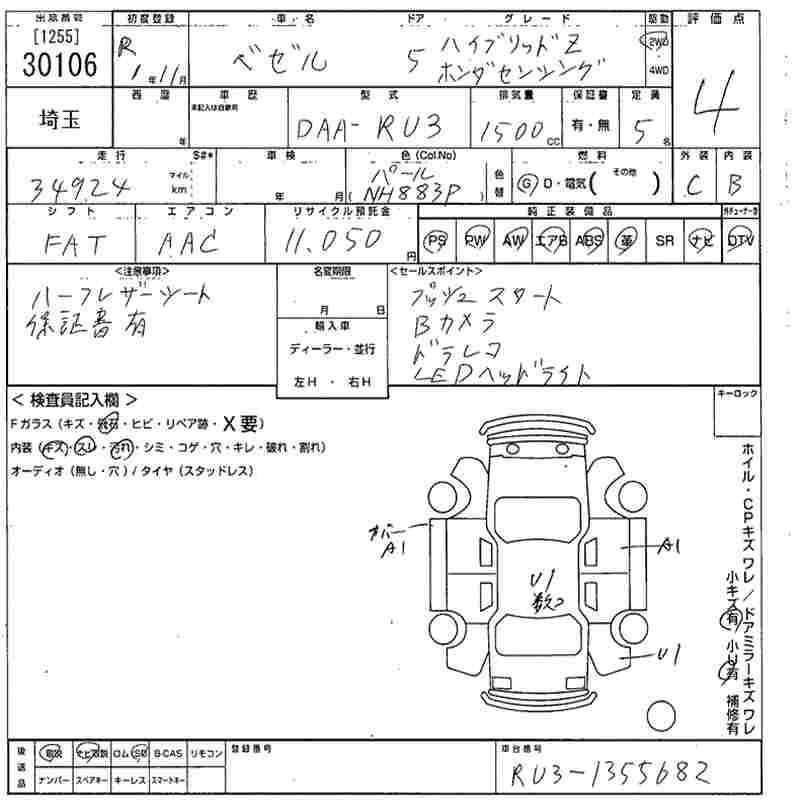 出品番号 初度登録 車名 ドア グレード 駆動 評価点
[1255]
30106
R 1年11月
ベゼル 5 ハイブリッドZ
ホンダセンシング
2WD
4WD
4
埼玉
西暦 車歴 型式 排気量 保証書 定員
未記入は自家用
年 DAA-RU3 1500cc 有・無 5名
走行 S#* 車検 色(Col.No) 燃料 外装 内装
34924 マイル km 年 月 パール
(NH883P) 色替 G D・電気(その他) C B
シフト エアコン リサイクル預託金 純正装備品
FAT AAC 11.050円 PS PW AW エアB ABS 革 SR ナビ DTV
<注意事項> 名変期限 <セールスポイント>
ハーフレザーシート
保証書有
月 日
輸入車
ディーラー・並行
左H・右H
プッシュスタート
Bカメラ
ドラレコ
LEDヘッドライト
<検査員記入欄> キーロック
Fガラス(キズ・飛石・ヒビ・リペア跡・X要)
内装(キズ・スレ・汚れ・シミ・コゲ・穴・キレ・破れ・割れ)
オーディオ(無し・穴)/タイヤ(スタッドレス)
カバー
A1
A1
U1
数コ
U1
ホイル・CPキズ ワレ/ドアミラーキズ ワレ
小キズ有 小U有 補修有
後送品 取説 ナビ取説 ロムSD B-CAS リモコン 登録番号 車台番号
ナンバー スペアキー キーレス スマートキー
RU3-1355682